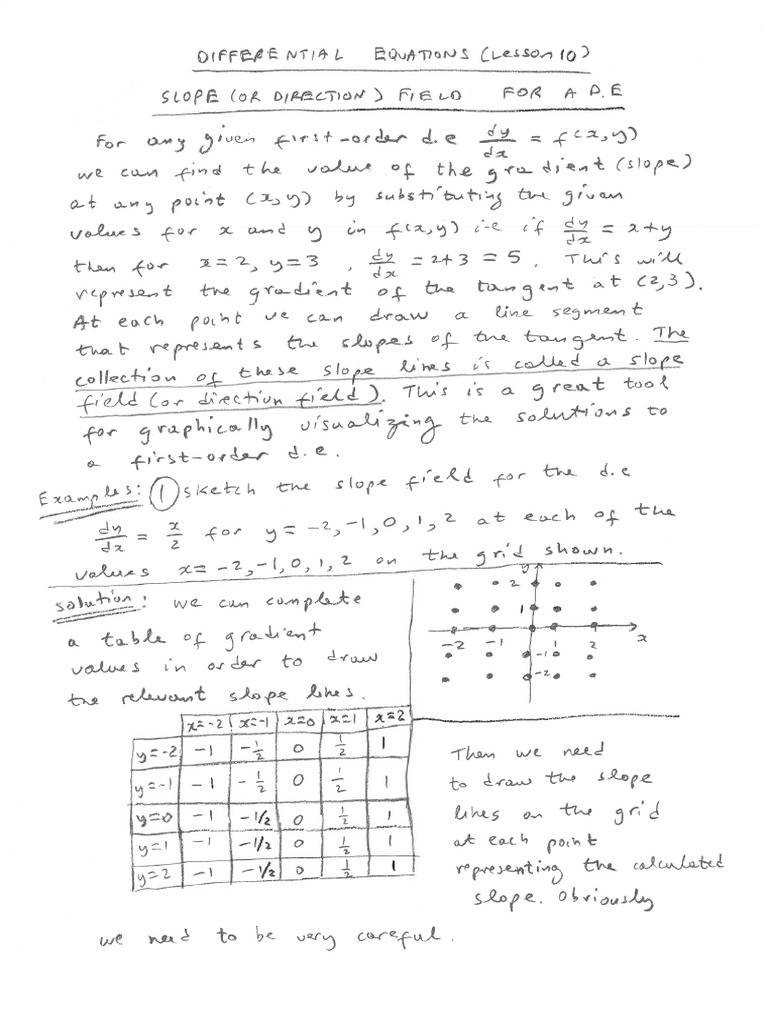 DIFFERENTIAL EQUATIONS (Lesson 10)
SLOPE (OR DIRECTION) FIELD FOR A D.E
For any given first-order d.e dy/dx = f(x,y)
we can find the value of the gradient (slope)
at any point (x,y) by substituting the given
values for x and y in f(x,y) i-e if dy/dx = x+y
then for x=2, y=3 , dy/dx = 2+3 = 5 . This will
represent the gradient of the tangent at (2,3).
At each point we can draw a line segment
that represents the slopes of the tangent. The
collection of these slope lines is called a slope
field (or direction field). This is a great tool
for graphically visualizing the solutions to
a first-order d.e.
Examples: ① sketch the slope field for the d.e
dy/dx = x/2 for y = -2, -1, 0, 1, 2 at each of the
values x = -2, -1, 0, 1, 2 on the grid shown.
solution: we can complete
a table of gradient
values in order to draw
the relevant slope lines.
y
2
1
-2 -1 1 2 x
-1
-2
x=-2 x=-1 x=0 x=1 x=2
y=-2 -1 -1/2 0 1/2 1
y=-1 -1 -1/2 0 1/2 1
y=0 -1 -1/2 0 1/2 1
y=1 -1 -1/2 0 1/2 1
y=2 -1 -1/2 0 1/2 1
Then we need
to draw the slope
lines on the grid
at each point
representing the calculated
slope. Obviously
we need to be very careful.